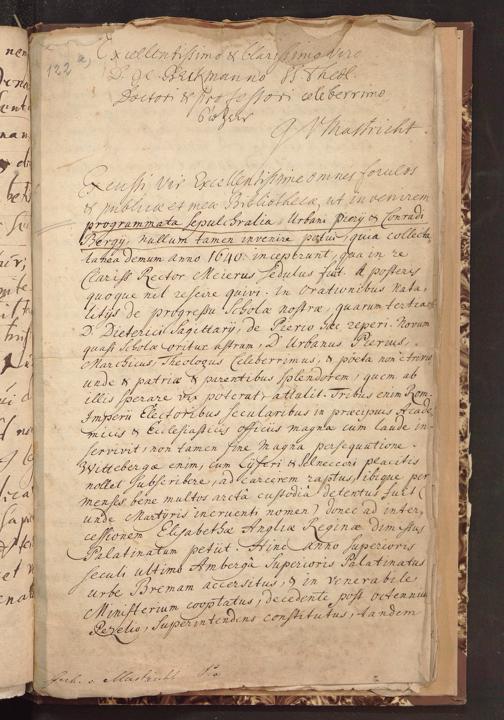 122 a)
Excellentissimo & Clarissimo Viro
D. SS Theol.
Doctori & Professori celeberrimo
G V Mastricht.
Excussi Vir Excellentissime omnes forulos
& publicæ et meæ Bibliothecæ, ut invenirem
programmata sepulchralia, Urbani Pierij & Conradi
Bergij, nullum tamen invenire potui, quia collecta
tanea demum anno 1640. inceperunt, qua in re
Clariss Rector Meierus sedulus fuit. A posteris
quoque nil rescire quivi. in orationibus nata,
litijs de progressu Scholæ nostræ, quarum tertia e
D. Dieterici Sagittarij, de Pierio hæc reperi. Novum
quasi Scholæ oritur astrum, D Urbanus Pierius,
Marchicus, Theologus Celeberrimus, & poeta non è trivio
unde & patriæ & parentibus splendorem, quem ab
illis sperare vix poterat, attulit. Tribus enim Rom.
Imperii Electoribus secularibus in præcipuis Acade
micis & Ecclesiasticis officiis magna cum laude in,
servivit, non tamen sine magna persequutione.
Wittebergæ enim, cum Lyseri & Selnecceri placitis
nollet subscribere, ad carcerem raptus, ibique per
menses bene multos arcta custodia detentus fuit (
unde Martyris incruenti nomen) donec ad inter,
cessionem Elisabethæ Angliæ Reginæ dimissus
Palatinatum petiit. Hinc anno superioris
seculi ultimo Amberga Superioris Palatinatus
urbe Bremam accersitus, & in venerabile
Ministerium cooptatus, decedente post octennium
Pezelio, Superintendens constitutus, tandem
Gerh. v. Mastricht